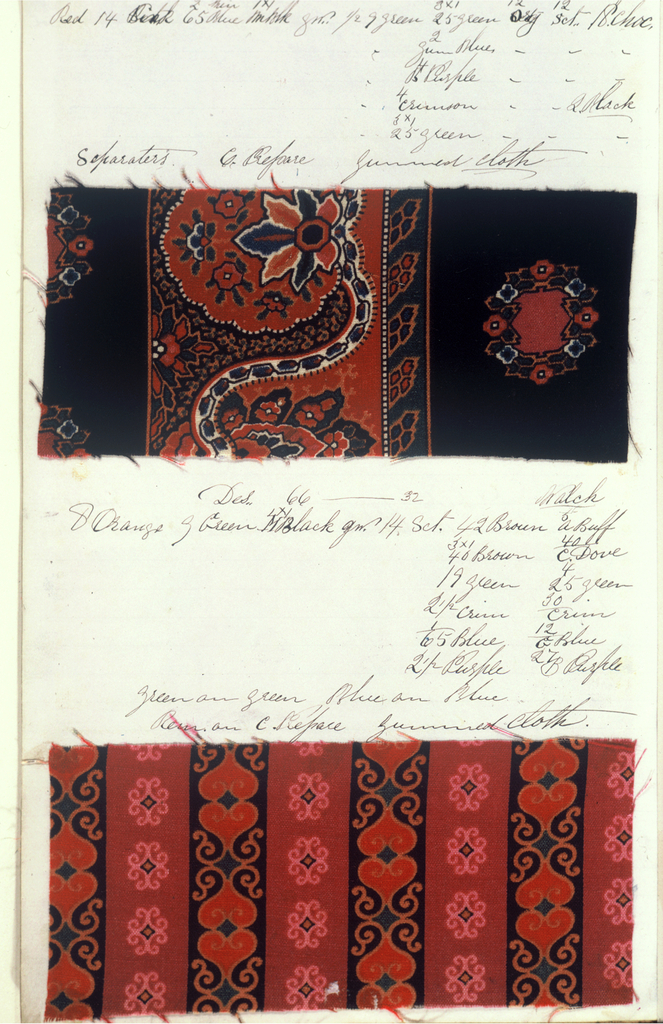 Red 14 Pink 65 Blue gm. 1/2 9 green 3x1 25 green 12 12 Sct. R. Choc.
2 gum Blues " " "
4 B Purple " " "
4 Crimson " " 2 Black
3x1 25 green " " "
Separaters C. Prepare gummed cloth
Des. 66 — 32 Watch
8 Orange 9 Green Black gm. 14. Sct. 42 Brown 6 a Buff
3x1 40 Brown 40 C. Dove
19 green 4 25 green
2 1/2 Crim 30 Crim
1 65 Blue 12 C Blue
2 1/2 Purple C Purple
green on green Blue on Blue
Run on C. Prepare gummed cloth.